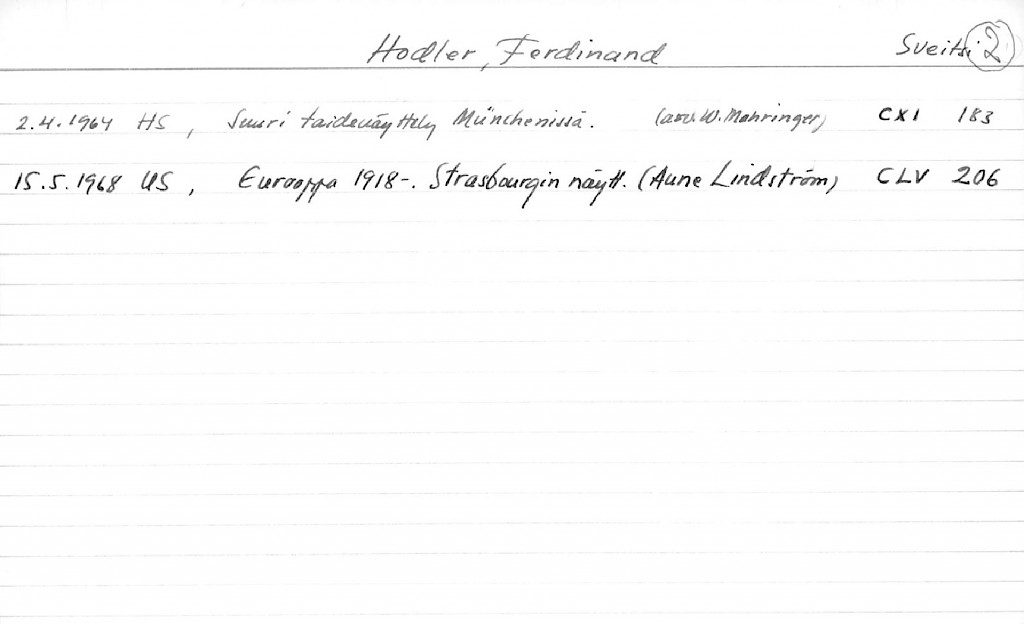 Hodler, Ferdinand Sveitsi 2
2.4.1964 HS, Suuri taidenäyttely Münchenissä. (arv. W. Mahringer) CXI 183
15.5.1968 US, Eurooppa 1918-. Strasbourgin näytt. (Aune Lindström) CLV 206